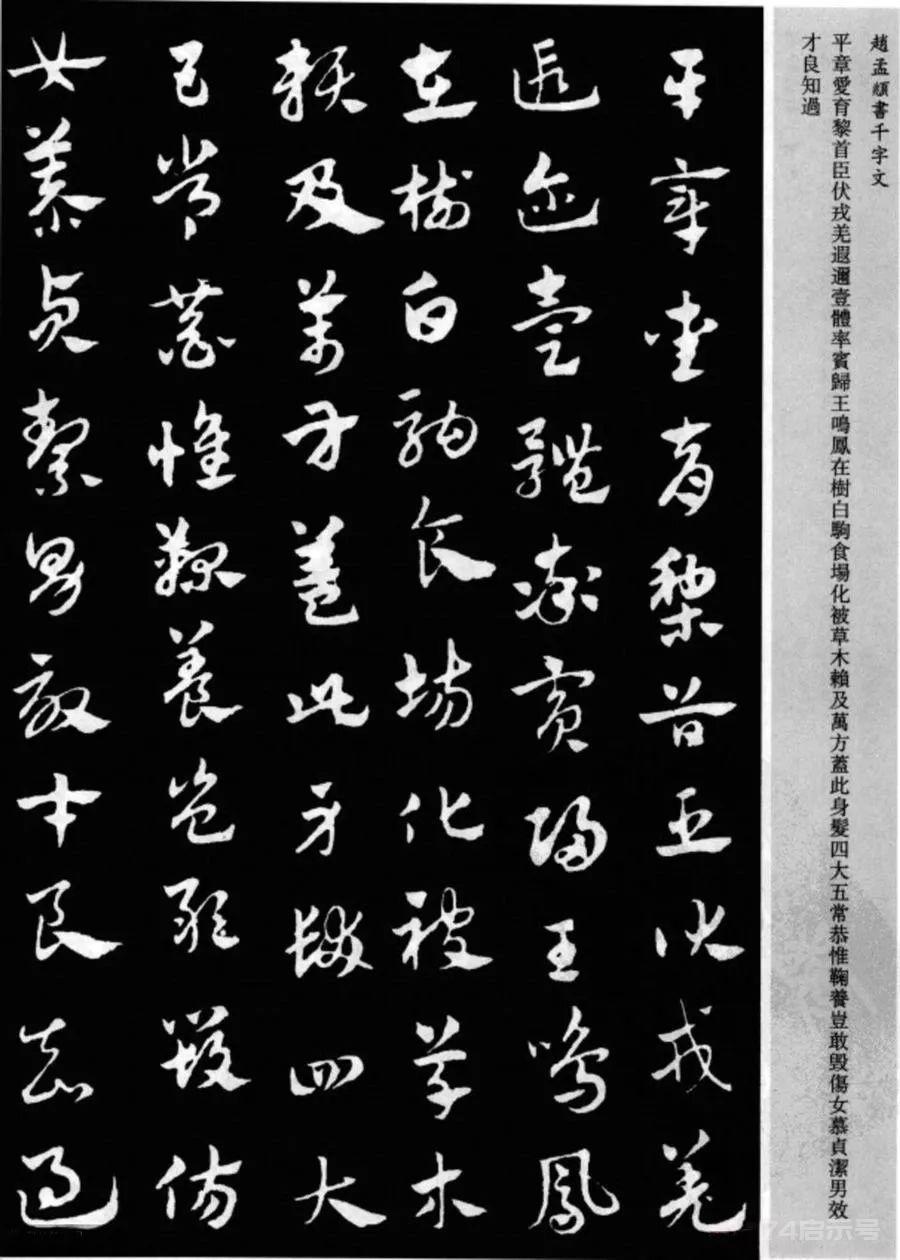 趙孟頫書千字文
平章愛育黎首臣伏戎羌遐邇壹體率賓歸王鳴鳳在樹白駒食場化被草木賴及萬方蓋此身髮四大五常恭惟鞠養豈敢毀傷女慕貞潔男效
才良知過
平章愛育黎首臣伏戎羌
遐邇壹體率賓歸王鳴鳳
在樹白駒食場化被草木
賴及萬方蓋此身髮四大
五常恭惟鞠養豈敢毀傷
女慕貞絜男效才良知過
74启示号